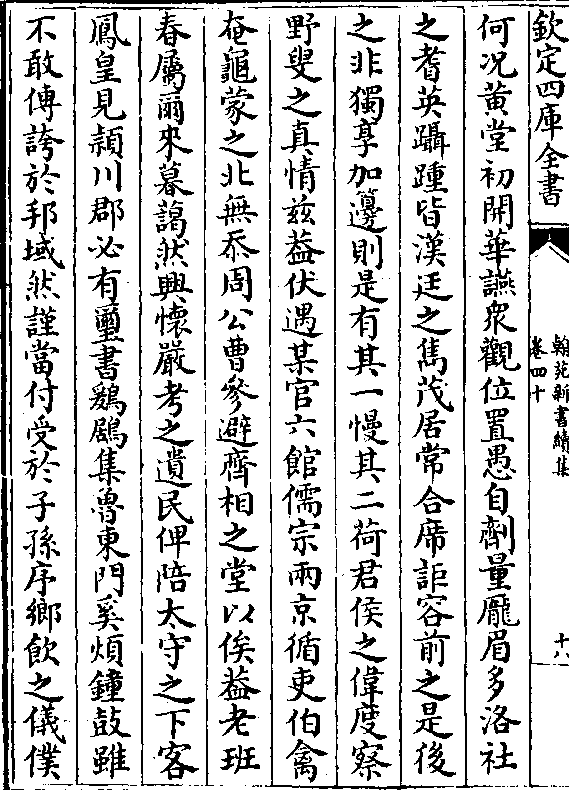 欽定四庫全書
翰苑新書續集
卷四十
十六
何况黄堂初開華讌衆觀位置愚自劑量厖眉多洛社
之耆英躡踵皆漢廷之雋茂居常合席詎容前之是後
之非獨享加籩則是有其一慢其二荷君侯之偉度察
野叟之真情兹葢伏遇某官六館儒宗兩京循吏伯禽
奄龜蒙之北無忝周公曹參避齊相之堂以俟葢老班
春屬爾來暮藹然興懷嚴考之遺民俾陪太守之下客
鳳皇見潁川郡必有璽書鷄鶋集魯東門奚煩鐘鼓雖
不敢傅誇於邦域然謹當付受於子孫序鄉飲之儀僕